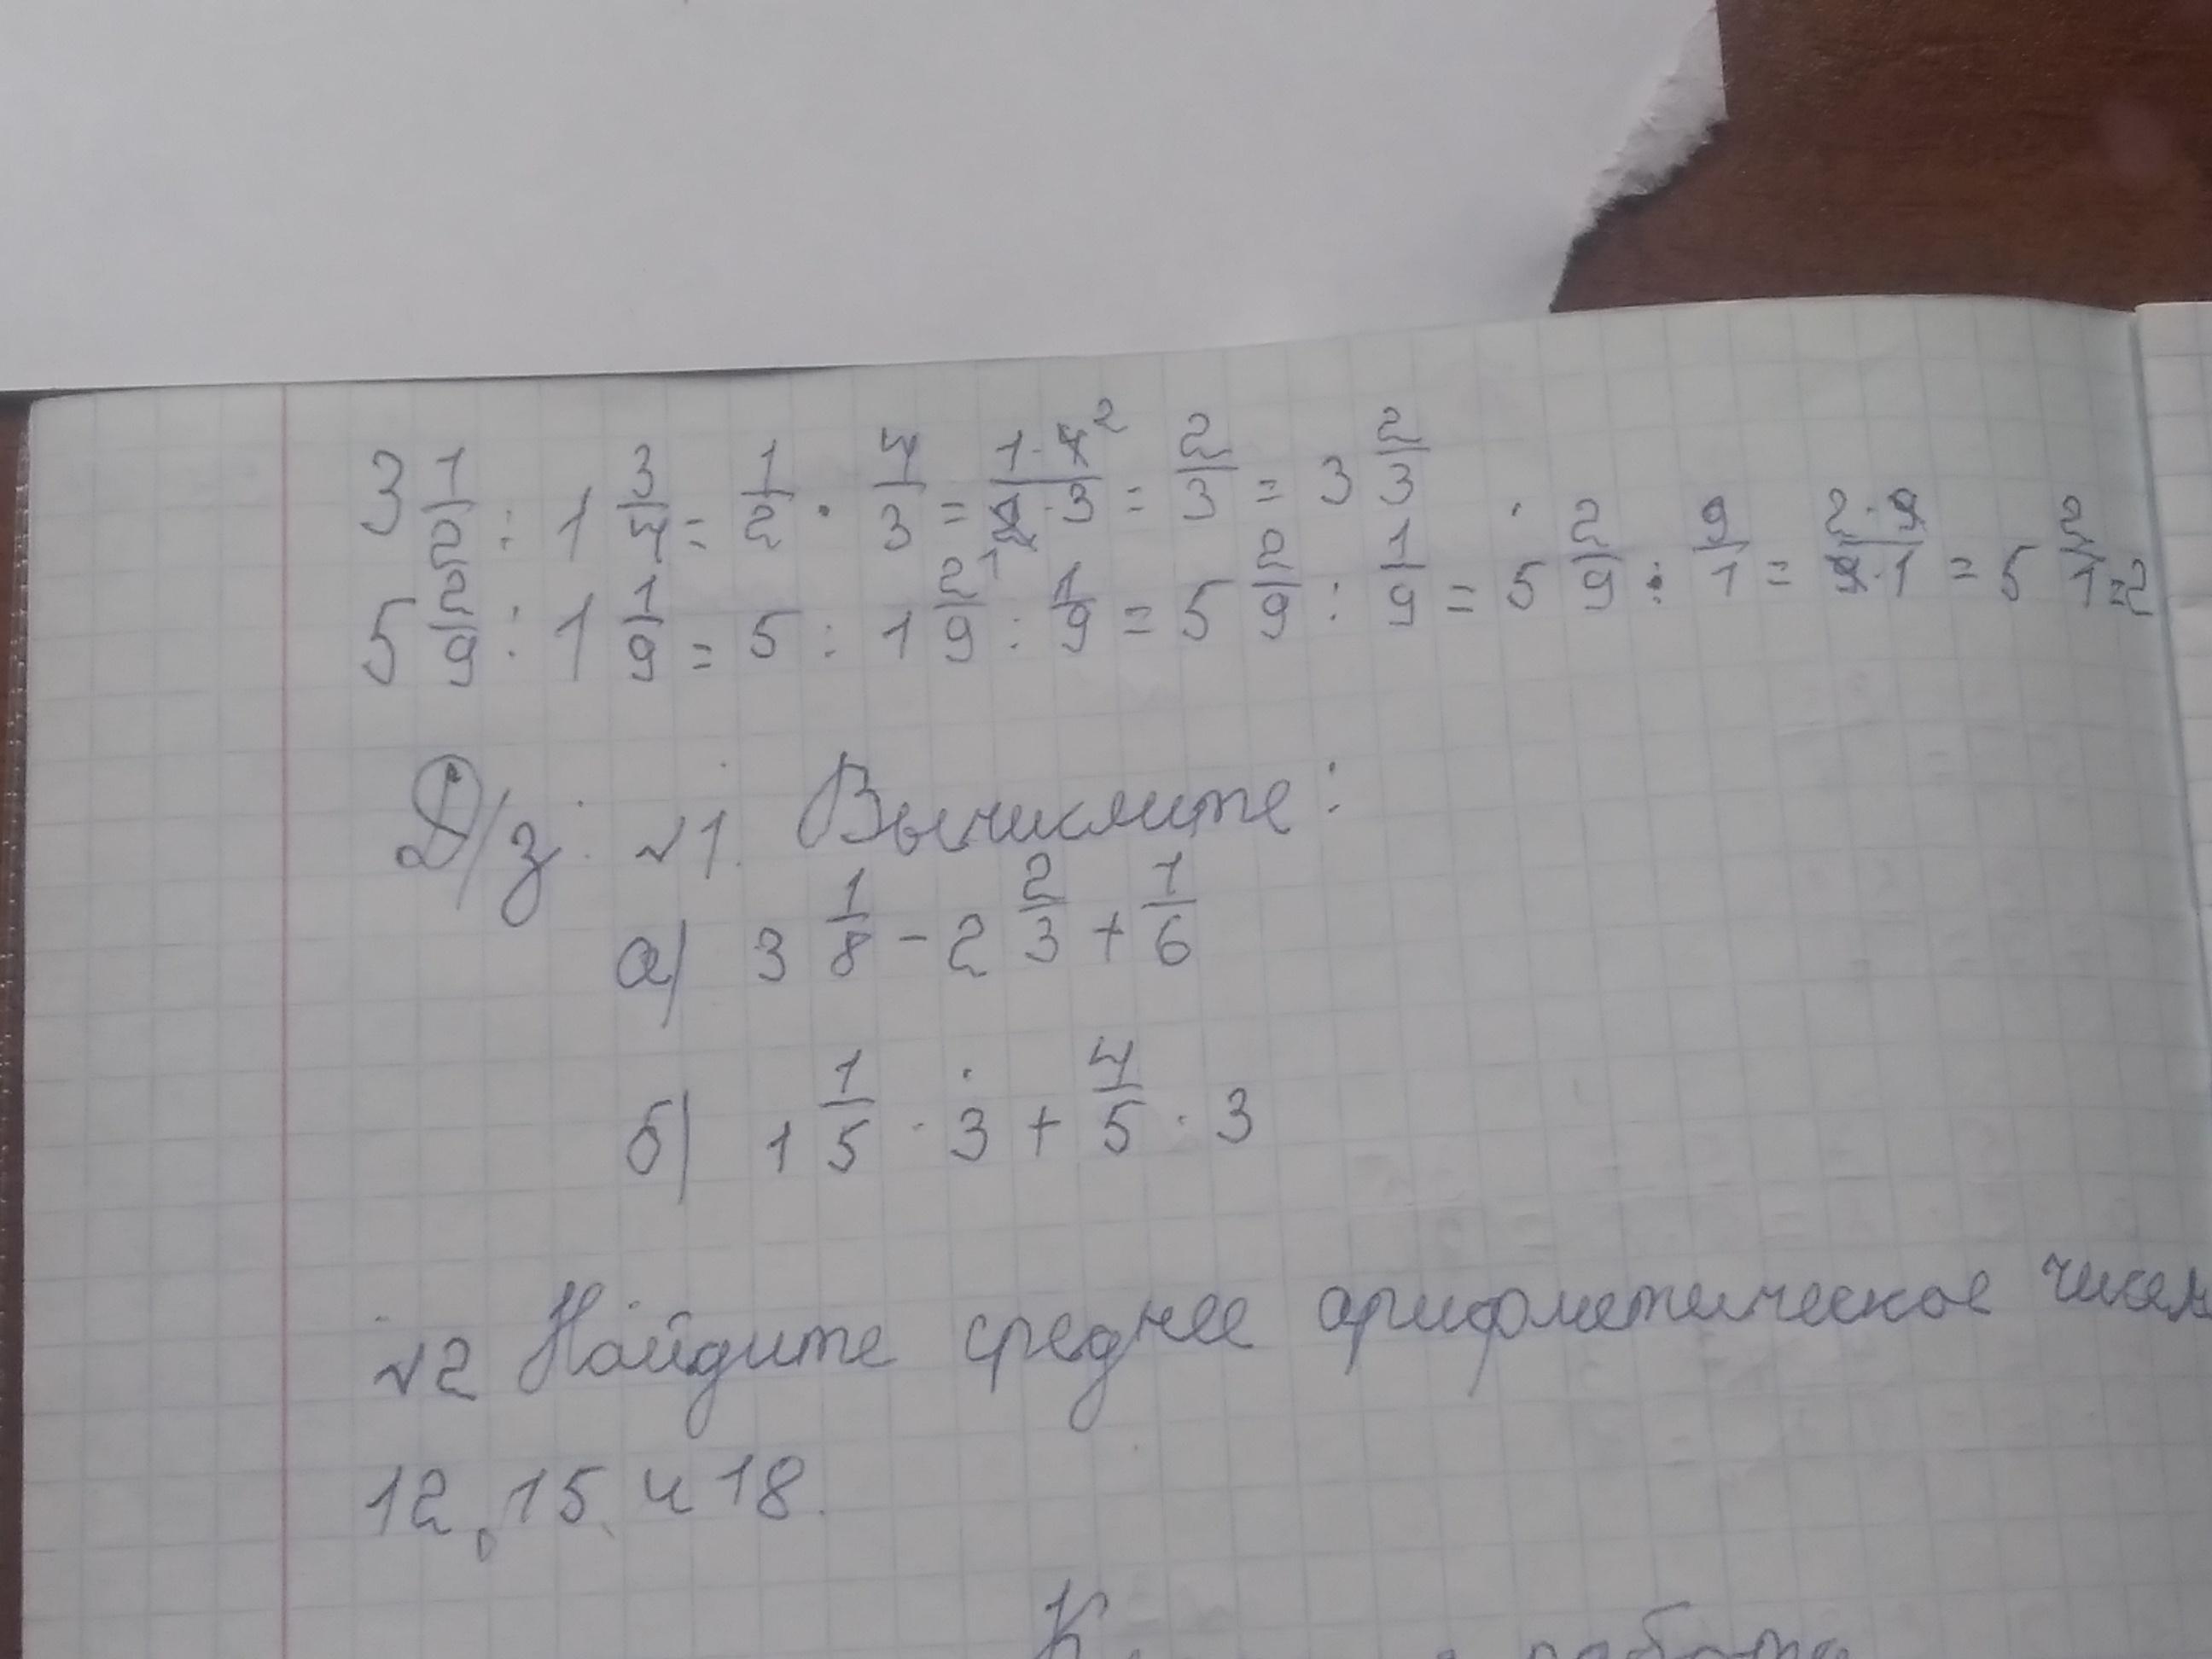 3 1/2 : 1 3/4 = 1/2 · 4/3 = 1·4²/2·3 = 2/3 = 3 2/3
5 2/9 : 1 1/9 = 5 : 1 2/9 : 1/9 = 5 2/9 : 1/9 = 5 2/9 : 9/1 = 2·9/9·1 = 5 2/1 = 2
Д/з: №1. Вычислите:
а) 3 1/8 - 2 2/3 + 1/6
б) 1 1/5 · 3 + 4/5 · 3
№2 Найдите среднее арифметическое чисел
12, 15 и 18.